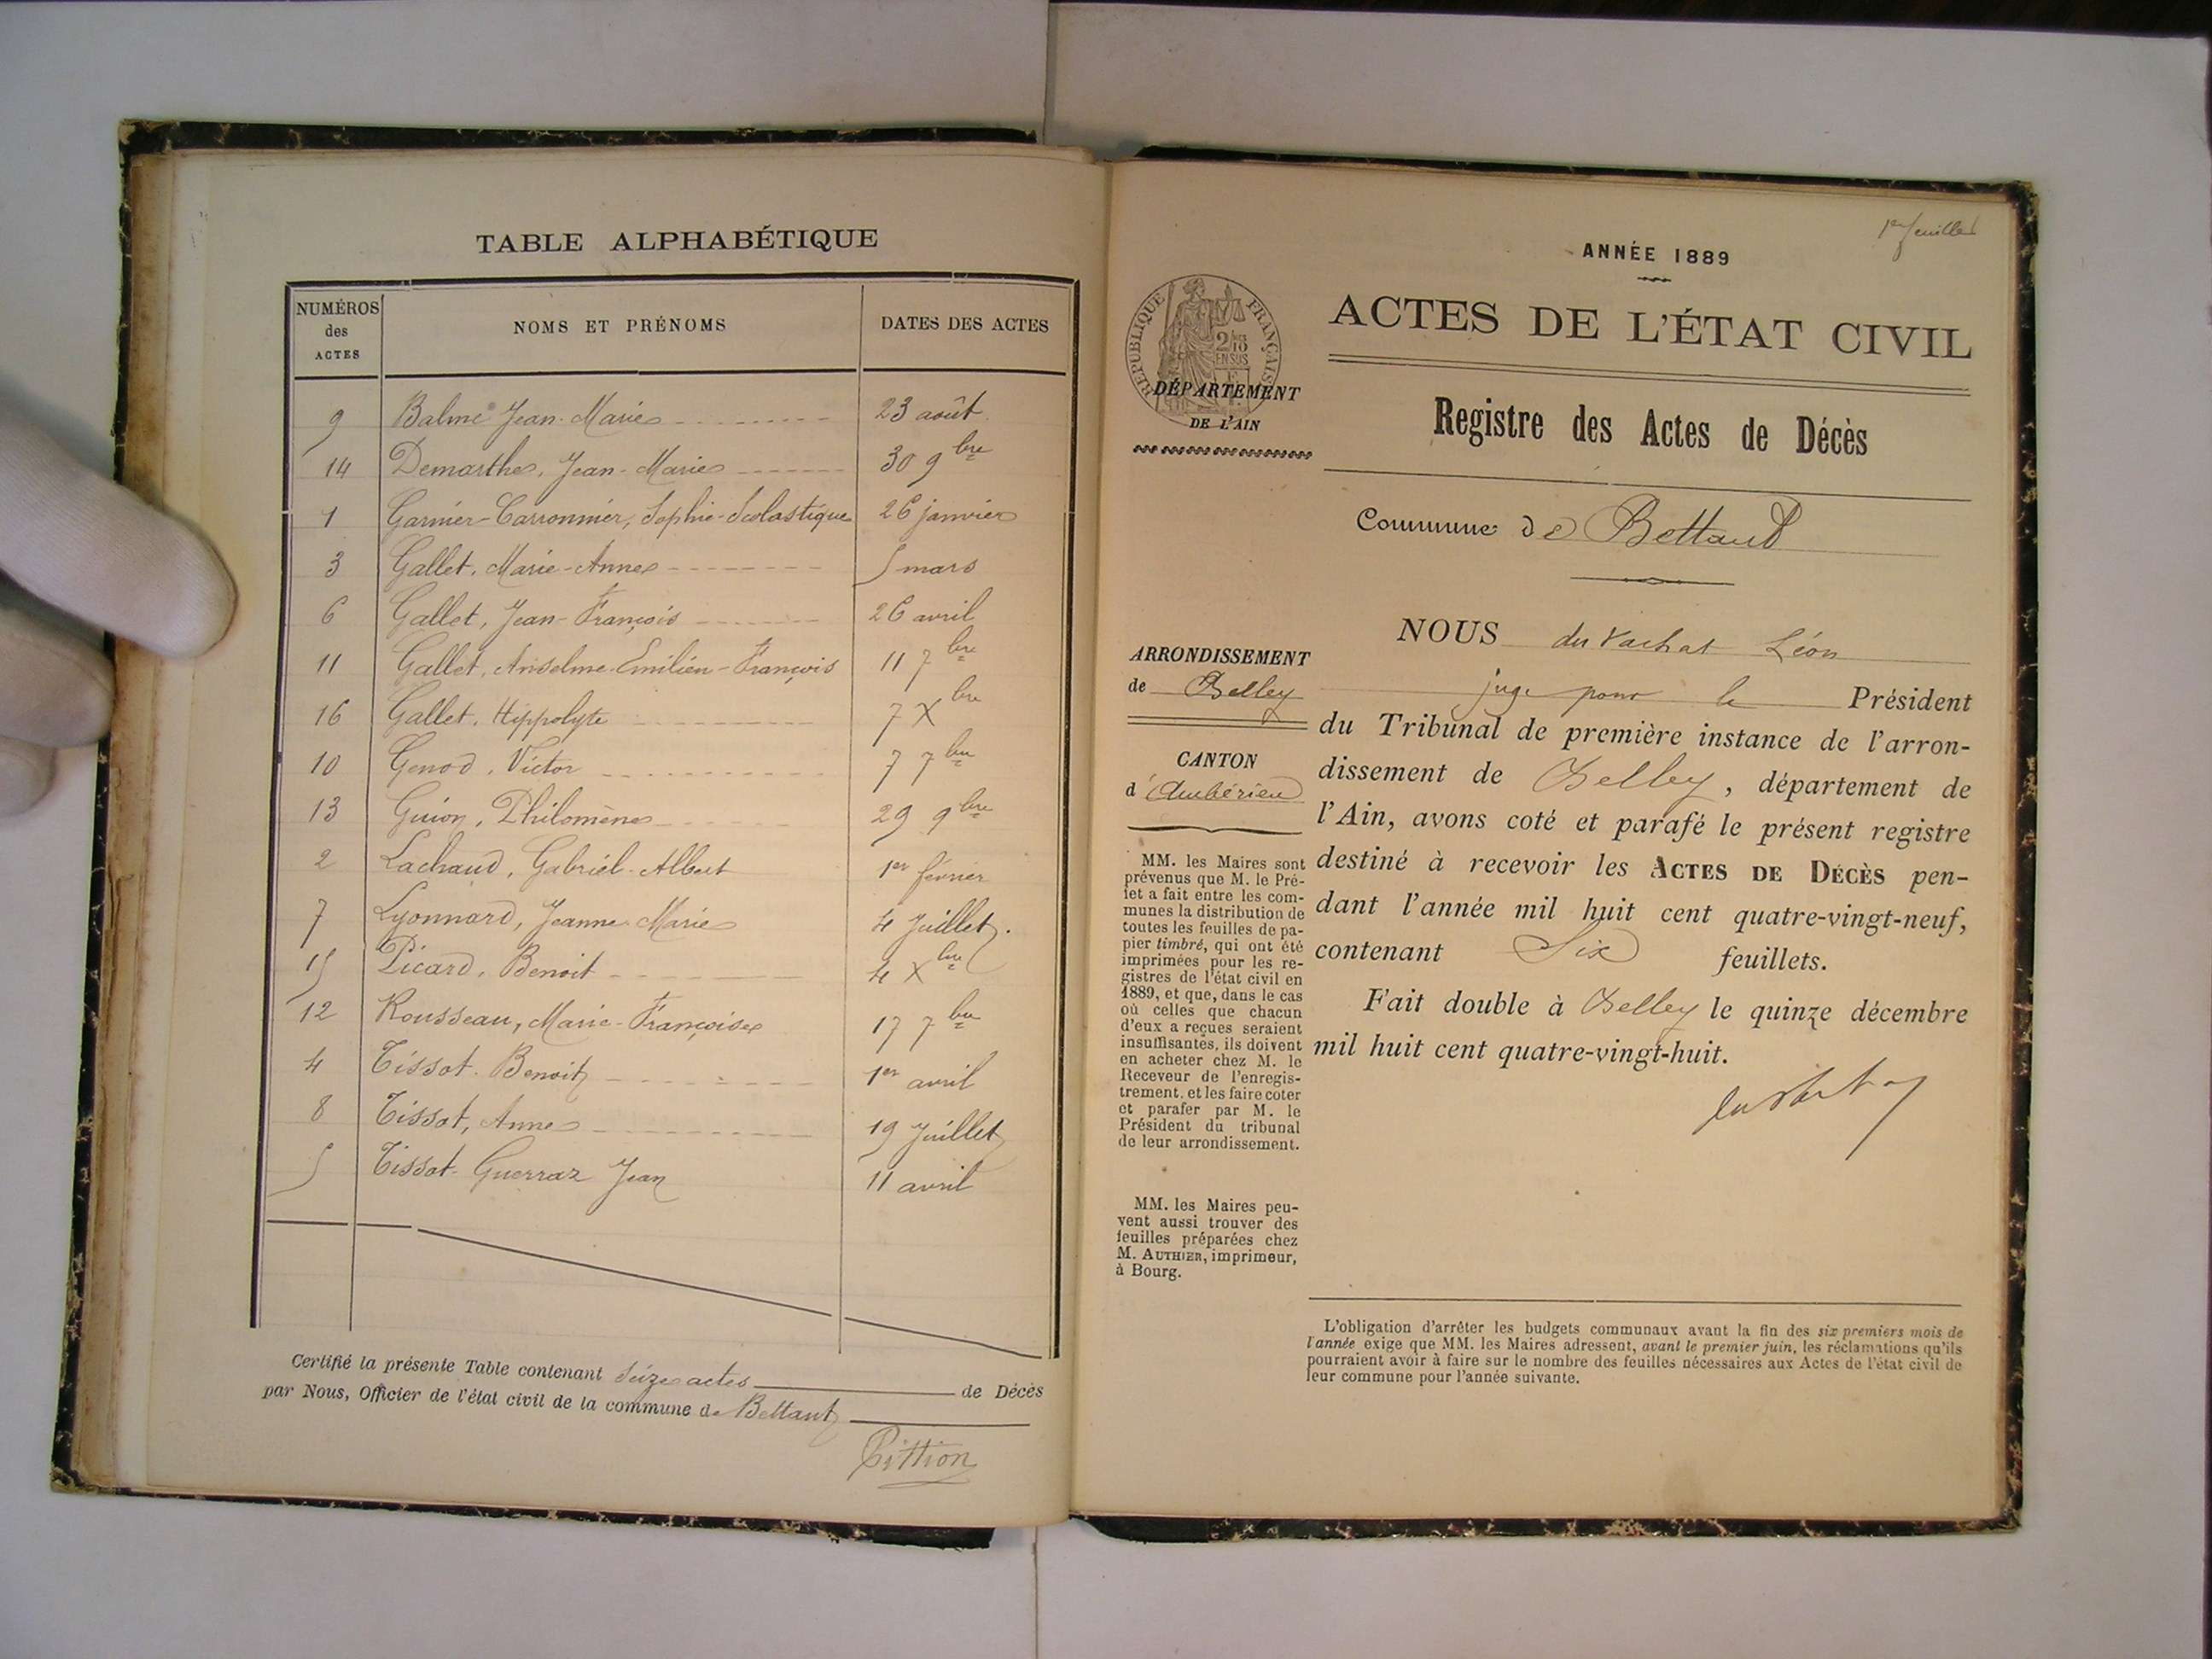 TABLE ALPHABÉTIQUE
NUMÉROS des ACTES NOMS ET PRÉNOMS DATES DES ACTES
9 Balme Jean-Marie 23 août
14 Demarthe, Jean-Marie 30 9bre
1 Garnier-Carronnier, Sophie-Scolastique 26 janvier
3 Gallet, Marie-Anne 5 mars
6 Gallet, Jean-François 26 avril
11 Gallet, Anselme-Emilien-François 11 7bre
16 Gallet, Hippolyte 7 Xbre
10 Genod, Victor 7 7bre
13 Guion, Philomène 29 9bre
2 Lachaud, Gabriel-Albert 1er février
7 Lyonnard, Jeanne Marie 4 Juillet
15 Picard, Benoit 4 Xbre
12 Rousseau, Marie-Françoise 17 7bre
4 Tissot Benoit 1er avril
8 Tissot, Anne 19 Juillet
5 Tissot-Guerraz Jean 11 avril
Certifié la présente Table contenant Seize actes de Décès
par Nous, Officier de l'état civil de la commune de Bettant
Pittion
1er feuillet
ANNÉE 1889
ACTES DE L'ÉTAT CIVIL
RÉPUBLIQUE FRANÇAISE
2/10
EN SUS
DÉPARTEMENT
DE L'AIN
Registre des Actes de Décès
Commune de Bettant
ARRONDISSEMENT
de Belley
CANTON
d'Ambérieu
MM. les Maires sont
prévenus que M. le Pré-
fet a fait entre les com-
munes la distribution de
toutes les feuilles de pa-
pier timbré, qui ont été
imprimées pour les re-
gistres de l'état civil en
1889, et que, dans le cas
où celles que chacun
d'eux a reçues seraient
insuffisantes, ils doivent
en acheter chez M. le
Receveur de l'enregis-
trement, et les faire coter
et parafer par M. le
Président du tribunal
de leur arrondissement.
MM. les Maires peu-
vent aussi trouver des
feuilles préparées chez
M. AUTHIER, imprimeur,
à Bourg.
NOUS du Vachat Léon
juge pour le Président
du Tribunal de première instance de l'arron-
dissement de Belley, département de
l'Ain, avons coté et parafé le présent registre
destiné à recevoir les ACTES DE DÉCÈS pen-
dant l'année mil huit cent quatre-vingt-neuf,
contenant Six feuillets.
Fait double à Belley le quinze décembre
mil huit cent quatre-vingt-huit.
L'obligation d'arrêter les budgets communaux avant la fin des six premiers mois de
l'année exige que MM. les Maires adressent, avant le premier juin, les réclamations qu'ils
pourraient avoir à faire sur le nombre des feuilles nécessaires aux Actes de l'état civil de
leur commune pour l'année suivante.